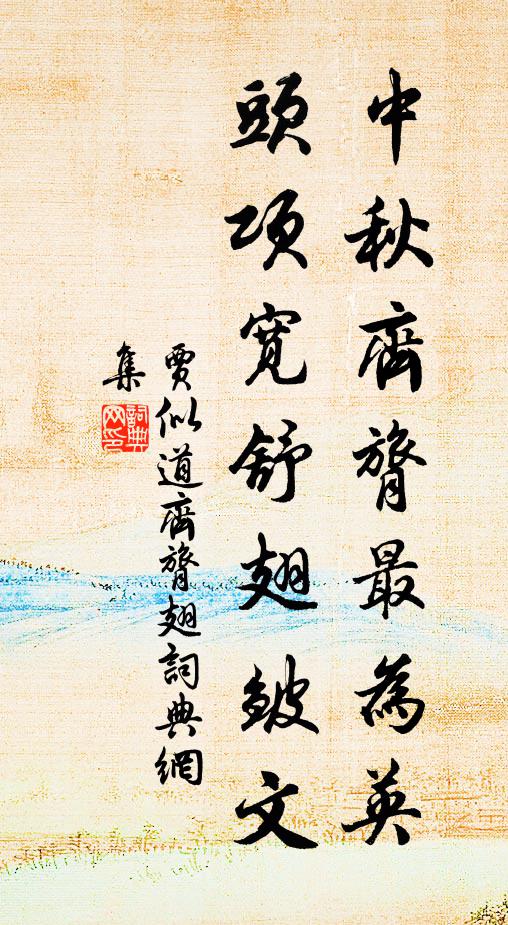 中秋齊膂最為英
頭項寬舒翅皴文
賈似道齊膂翅詞典網
集
詞典網印